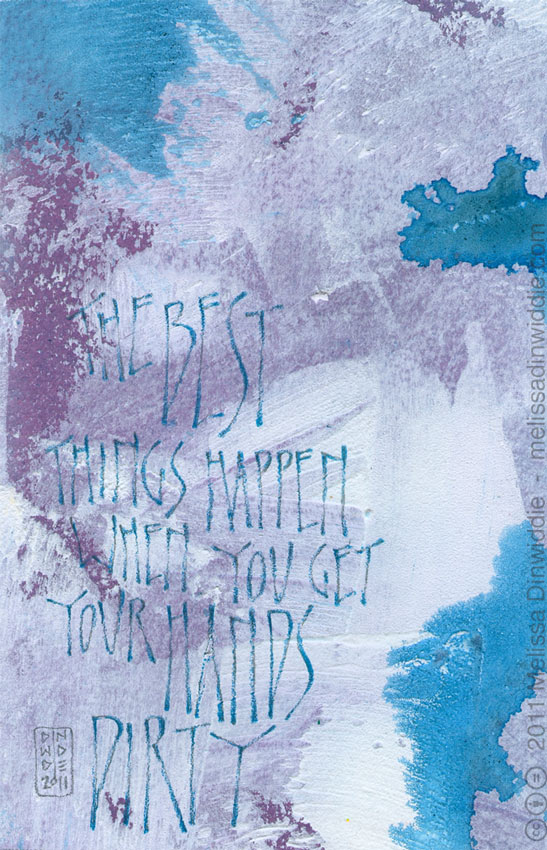 THE BEST
THINGS HAPPEN
WHEN YOU GET
YOUR HANDS
DIRTY
DIN
DWD
DIE
2011
2011 Melissa Dinwiddie - melissadinwiddie.com